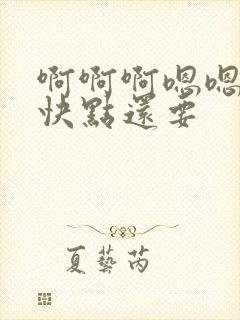 啊啊啊嗯嗯
快點還要
夏藝芮